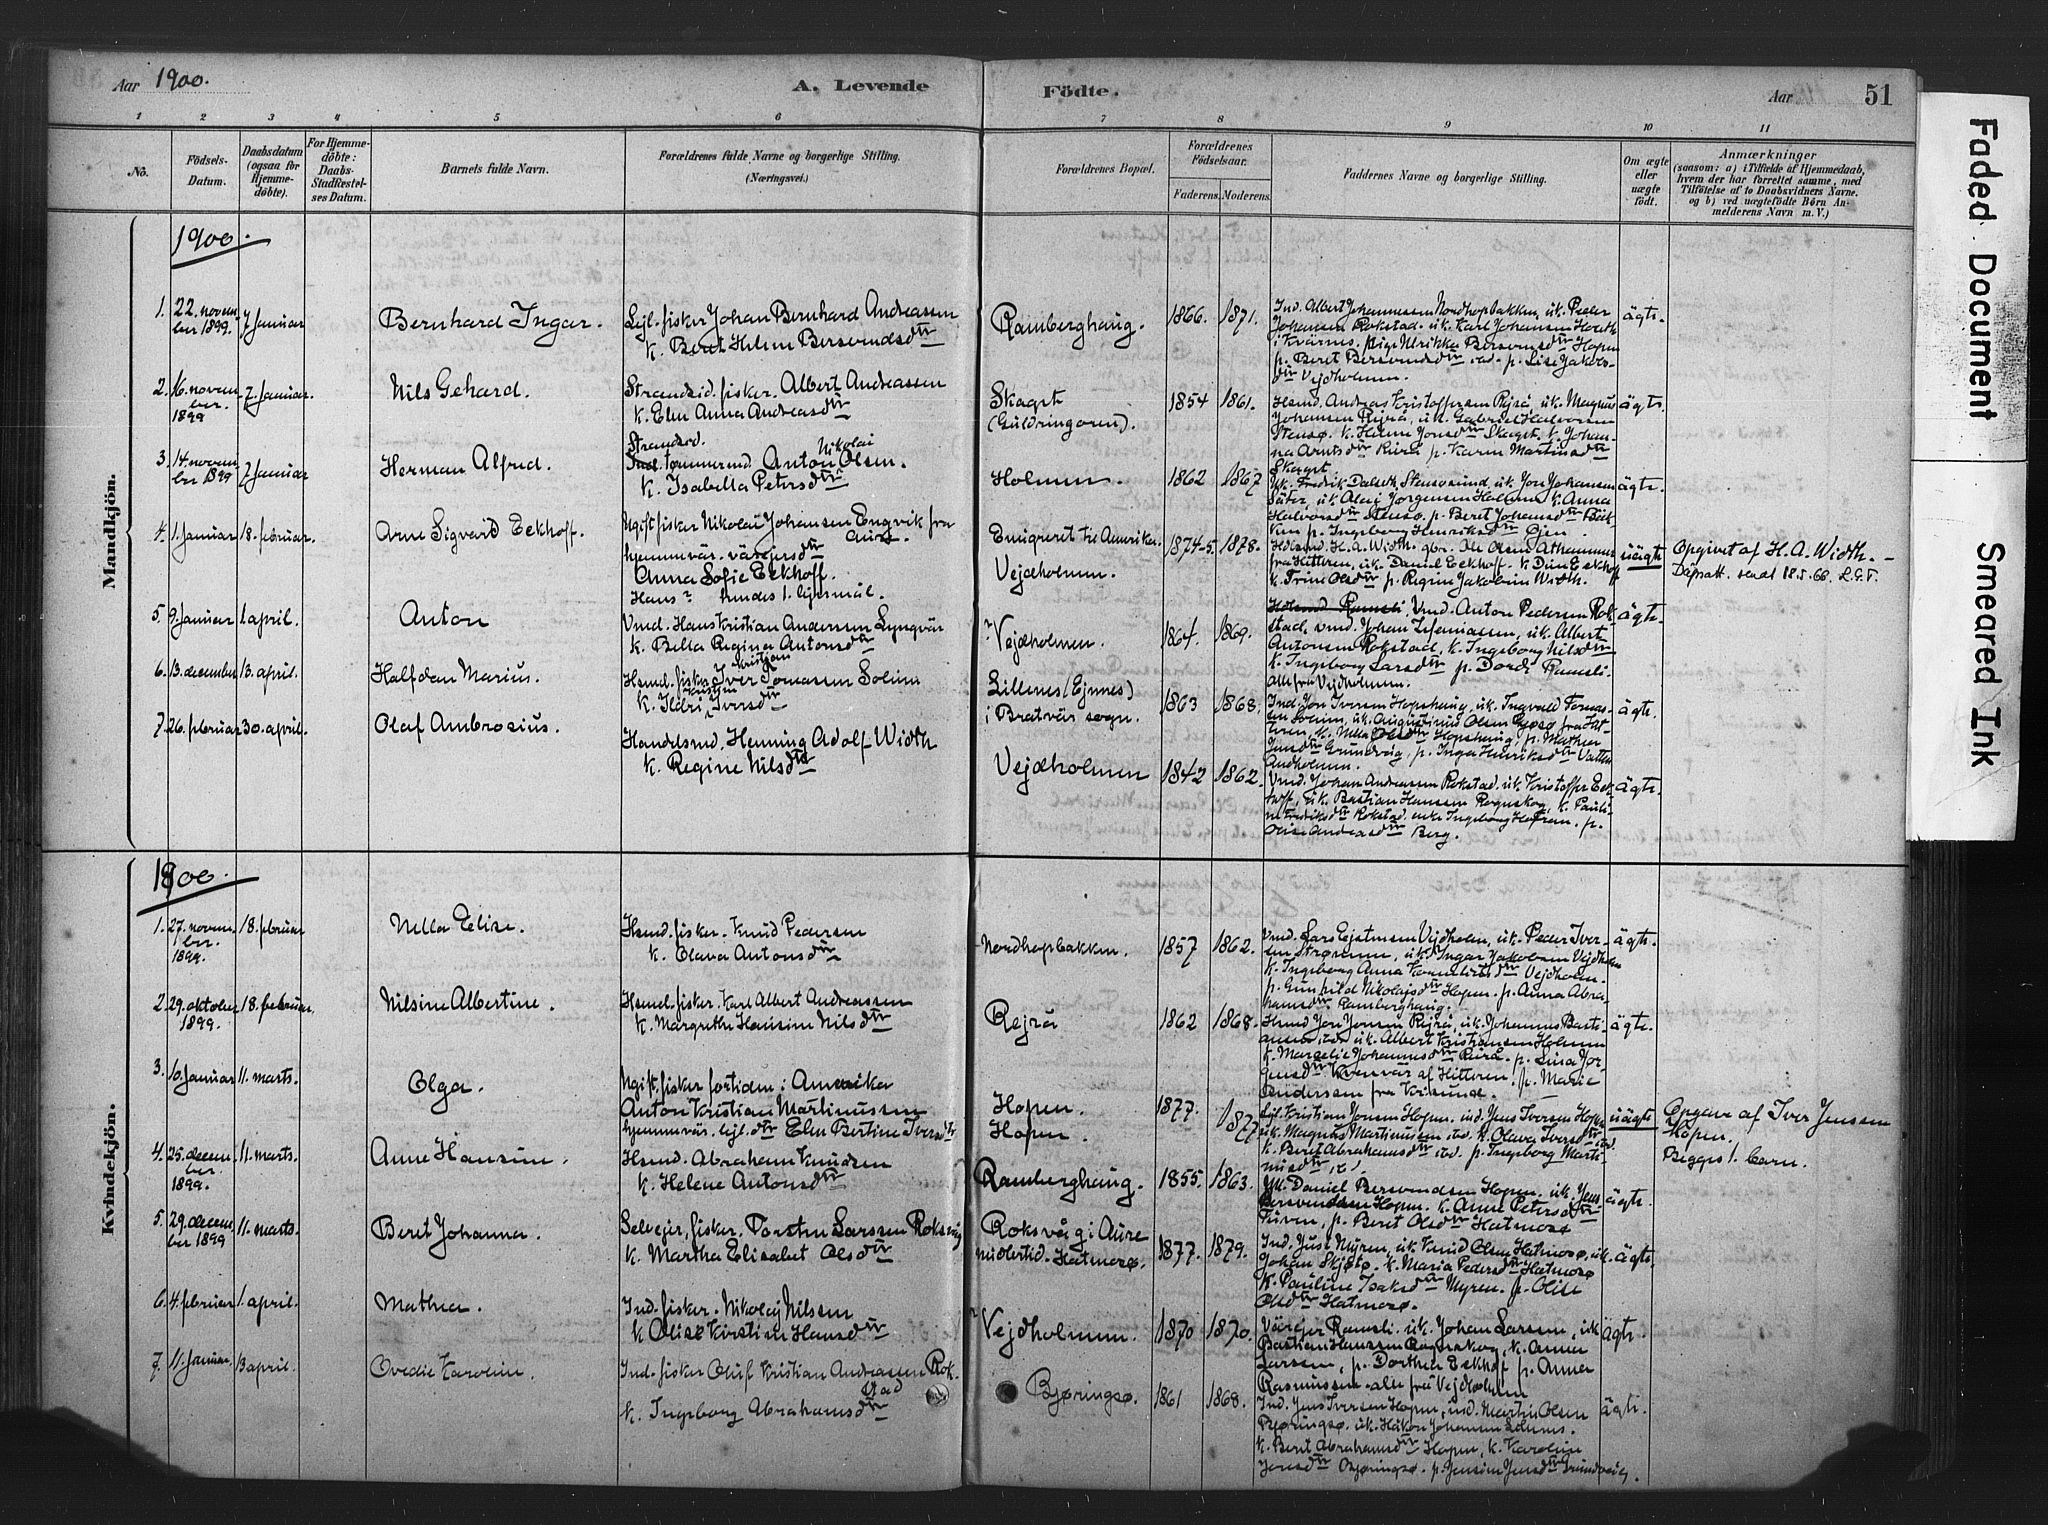 Aar 1900. A. Levende
Födte. Aar 51
1 2 3 4 5 6 7 8 9 10 11
No.
Födsels-Datum.
Daabsdatum (ogsaa for Hjemme-döbte).
For Hjemme-döbte: Daabs-Stadfæstel-ses Datum.
Barnets fulde Navn.
Forældrenes fulde Navne og borgerlige Stilling. (Næringsvei.)
Forældrenes Bopæl.
Forældrenes Födselsaar.
Faderens. Moderens.
Faddernes Navne og borgerlige Stilling.
Om ægte eller uægte födt.
Anmærkninger
(saasom: a) i Tilfælde af Hjemmedaab, hvem der har forrettet samme, med Tilföielse af to Daabsvidners Navne. og b) ved uægtefödte Börn An-melderens Navn m. V.)
Mandkjön.
1900.
1. 22. novem-ber 1899. 7 Januar Bernhard Ingar. Lejl. fisker Johan Bernhard Andreassen
k. Beret Helene Bersvendsdtr
Ramberghaug. 1866. 1871. Ind. Albert Johannessen Nordhopbakken, uk. Peder
Johansen Rokstad. uk. Karl Johansen
p. Beret Bersvendsdtr ibd. p. Lise Jakobs-
dtr Vejdholmen. ägte.
2. 16. novem-ber. 1899 7. Januar. Nils Gehard. Strandsid. fisker. Albert Andreassen
k. Elen Anna Andreasdtr
Skaget (Guldringoren). 1854 1861. Hsmd. Andreas Kristoffersen Rejrö, uk. Magnus
Johansen Rejrö, uk. Gabriel Halvorsen
Stensö. k. Hanna Jonsdtr Skaget. k. Johan-
na Arntsdtr p. Karen Martinsdtr
Skaget. ägte.
3. 14. novem-ber 1899 7 Januar Herman Alfred. Strandsd. tømmermd Anton Nikolai Olsen.
k. Isabella Petersdtr
Holmen. 1862 1867 uk. Fredrik Dalseth, uk. Jon Johansen
uk. Olaj Jørgensen Holmen k. Anna
Halvorsdtr Stensö. p. Beret Johansdtr
p. Ingeborg Henriksdtr ägte.
4. 1. Januar 18. februar. Arne Sigvard Eckhoff. Ugift fisker Nikolai Johansen Engvik fra Aure.
hjemmevär. värejersdtr
Anna Sofie Eckhoff.
Hans ? hendes 1. lejermål.
Emigreret til Amerika.
Vejdholmen. 1874-5. 1878. H. A. Width. gbr. Ole Olsen
fra Hitteren, uk. Daniel Eckhoff. k. Eckhoff
k. Trine Olsdtr p. Regine Jakobine Width. uägte
Opgivet af H. A. Width. –
Dåpsatt. sendt 18.5.66. L.G.F.
5. 9. Januar 1. april. Anton Vmd. Hans Kristian Andersen Lyngvär
k. Bella Regina Antonsdtr
Vejdholmen. 1864. 1869. Vmd. Anton Pedersen Rok-
stad, vmd. Johan uk. Albert
Antonsen Rokstad, k. Ingeborg Nilsdtr
k. Ingeborg Larsdtr p. Ramsli.
alle fra Vejdholmen. ägte.
6. 13. december 13. april. Halfdan Marius. Hsmd. fisker Iver Kristian Tomassen Solem
k. Ildri Kristine Iversdtr
Lillenes (Ejnnes)
i Bratvär sogn. 1863 1868. Ind. Jon Iversen Hopshaug, uk. Ingvald Tomas-
sen Solem, uk. Augustinus Olsen fra Hit-
teren, k. Nella Olsdtr Hopshaug, p. Mathea
p. Inga Henriksdtr
ägte.
7. 26. februar 30. april. Olaf Ambrosius. Handelsmd. Henning Adolf Width
k. Regine Nilsdtr
Vejdholmen 1842 1862. Vmd. Johan Andreassen Rokstad. uk. Kristoffer Eck-
hoff, uk. Bastian Hanssen Rognskog, k. Pauli-
ne Fredriksdtr Rokstad. enke Ingeborg p.
Olise Andreasdtr Berg. ägte.
Kvindekjön.
1900.
1. 27. novem-ber. 1899. 18. februar Nella Elise. Hsmd. fisker. Knud Pedersen
k. Olava Antonsdtr
Nordhopbakken. 1857 1862. Vmd. Lars Vejdholm, uk. Peder Iver-
sen uk. Ingar Jakobsen Vejdholm
k. Ingeborg Anna Vejdholm.
p. Gunhild Nikolajsdtr Hopen. p. Anna Abra-
hamsdtr Ramberghaug. ägte.
2. 29. oktober 1899. 18. februar Nilsine Albertine. Hsmd. fisker. Karl Albert Andreassen
k. Margrethe Hansine Nilsdtr
Rejrö 1862 1868. Hsmd Jon Jonsen Rejrö, uk. Johannes Basti-
ansen, ibd. uk. Albert Kristiansen Holmen
k. Margelie Johannesdtr p. Lina Jør-
gensdtr Kvenvär af Hitteren. p. Marie
Andersen fra Kristiansund. ägte.
3. 10. Januar 11. marts. Olga. Ugift. fisker fortiden i Amerika
Anton Kristian Martinussen
hjemmevär. lejl.dtr Elen Bertine Iversdtr
Hopen.
Hopen. 1877. 1877 Lejl. Kristian Jonsen Hopen. ind. Jens Iversen Hopen
uk. Magnus Martinussen ibd. k. Olava Iversdtr ibd.
k. Beret Abrahamsdtr ibd. p. Ingeborg Marti-
nusdtr ibd. uägte
Opgave af Iver Jenssen
Hopen.
Begges 1. barn.
4. 25. decem-ber. 1899. 11. marts. Anne Hansine. Hsmd. Abraham Knudsen
k. Helene Antonsdtr
Ramberghaug. 1855. 1863. Daniel Bersvendsen Hopen. uk. Jens
Bersvendsen Hopen. k. Anne Petersdtr
p. Beret Olsdtr Hatmosö ägte.
5. 29. decem-ber 1899 11. marts. Beret Johanna. Selvejer, fisker. Torsten Larssen Roksvåg
k. Martha Elisabet Olsdtr
Roksvåg i Aure
midlertid. Hatmosö. 1877. 1879. Ind. Just Myren, uk. Knud Olsen Hatmosö, uk.
Johan Skjøtø. k. Maria Pedersdtr Hatmosö
k. Pauline Isaksdtr Myren. p. Olise
Olsdtr Hatmosö. ägte.
6. 4. februar 1. april. Mathea. Ind. fisker. Nikolaj Nilssen
k. Olise Kirstine Hansdtr
Vejdholmen. 1870 1870. Värejer Ramsli. uk. Johan Larssen, uk
Bastian Hanssen Rognskog, k. Anna
Larssen, p. Dorthea Eckhoff p. Anna
Rasmussen. alle fra Vejdholmen ägte.
7. 11. Januar. 13 april. Ovedie Karoline. Ind. fisker Oluf Kristian Andreassen Rok-
stad
k. Ingeborg Abrahamsdtr
Bjøringsø. 1861 1868. Ind. Jens Iversen Hopen, ind. Martin Olsen
Bjøringsø. uk. Håkon Johansen
k. Beret Abrahamsdtr Hopen, k. Karoline
Jonsdtr Bjøringsø. p. Jensine Jensdtr Grundvåg. ägte.
Faded Document
Smeared Ink